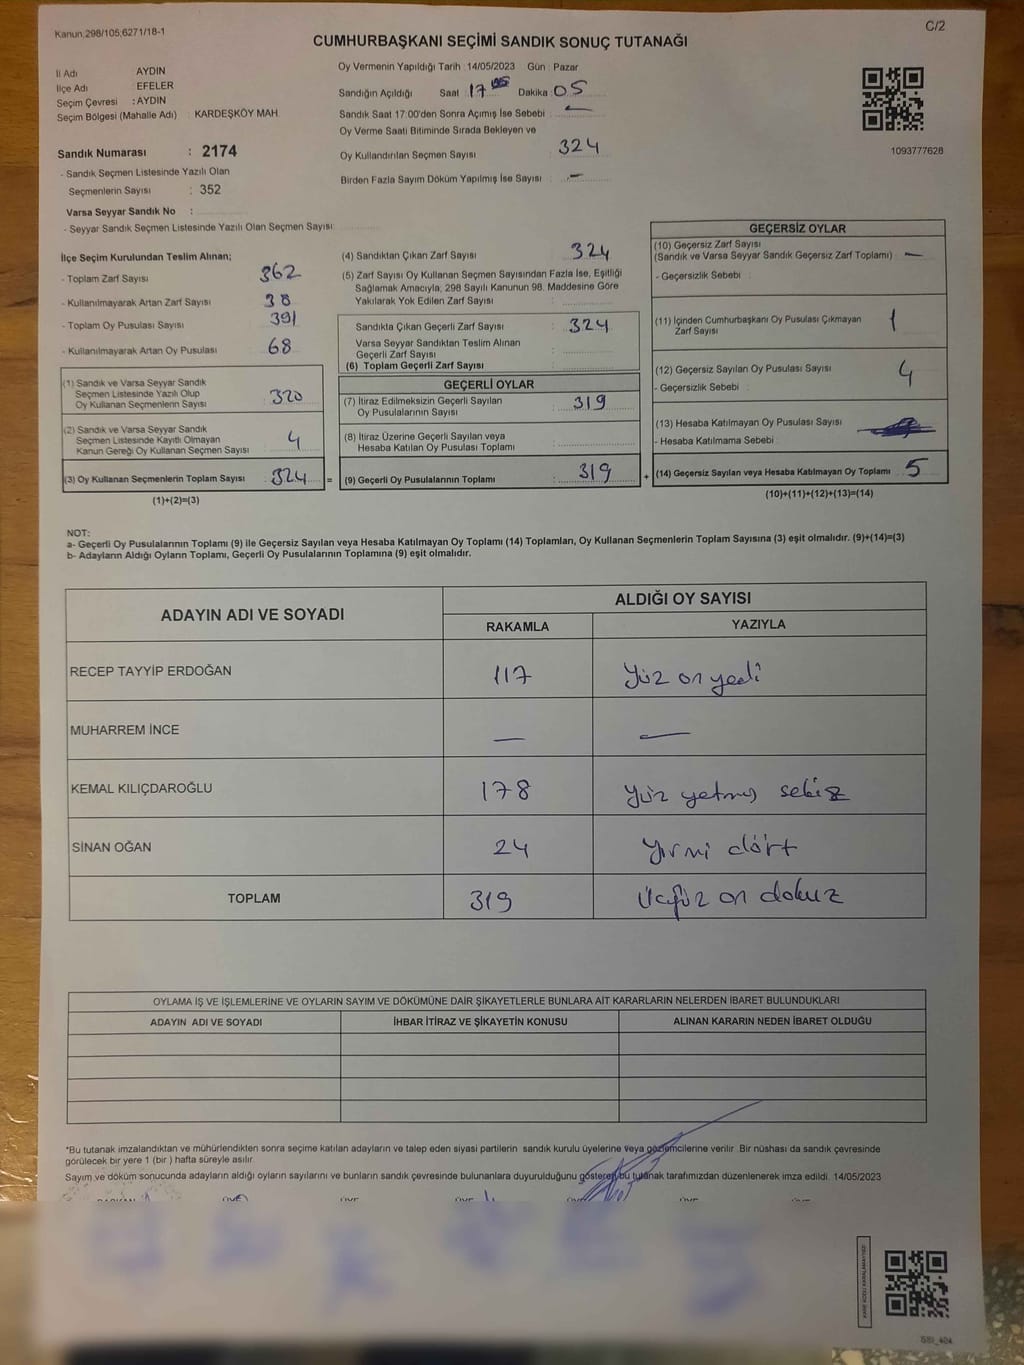 Kanun;298/105;6271/18-1
C/2
CUMHURBAŞKANI SEÇİMİ SANDIK SONUÇ TUTANAĞI
İl Adı AYDIN
İlçe Adı : EFELER
Seçim Çevresi : AYDIN
Seçim Bölgesi (Mahalle Adı) : KARDEŞKÖY MAH.
Sandık Numarası : 2174
- Sandık Seçmen Listesinde Yazılı Olan
Seçmenlerin Sayısı : 352
Varsa Seyyar Sandık No :
- Seyyar Sandık Seçmen Listesinde Yazılı Olan Seçmen Sayısı
Oy Vermenin Yapıldığı Tarih : 14/05/2023 Gün : Pazar
Sandığın Açıldığı Saat : 17 Dakika : 05
Sandık Saat 17:00'den Sonra Açımış İse Sebebi : —
Oy Verme Saati Bitiminde Sırada Bekleyen ve
Oy Kullandırılan Seçmen Sayısı : 324
Birden Fazla Sayım Döküm Yapılmış İse Sayısı : —
1093777628
İlçe Seçim Kurulundan Teslim Alınan;
- Toplam Zarf Sayısı : 362
- Kullanılmayarak Artan Zarf Sayısı : 38
- Toplam Oy Pusulası Sayısı : 391
- Kullanılmayarak Artan Oy Pusulası : 68
(1) Sandık ve Varsa Seyyar Sandık
Seçmen Listesinde Yazılı Olup
Oy Kullanan Seçmenlerin Sayısı : 320
(2) Sandık ve Varsa Seyyar Sandık
Seçmen Listesinde Kayıtlı Olmayan
Kanun Gereği Oy Kullanan Seçmen Sayısı : 4
(3) Oy Kullanan Seçmenlerin Toplam Sayısı : 324 =
(1)+(2)=(3)
(4) Sandıktan Çıkan Zarf Sayısı : 324
(5) Zarf Sayısı Oy Kullanan Seçmen Sayısından Fazla İse, Eşitliği
Sağlamak Amacıyla, 298 Sayılı Kanunun 98. Maddesine Göre
Yakılarak Yok Edilen Zarf Sayısı :
Sandıkta Çıkan Geçerli Zarf Sayısı : 324
Varsa Seyyar Sandıktan Teslim Alınan
Geçerli Zarf Sayısı :
(6) Toplam Geçerli Zarf Sayısı :
GEÇERLİ OYLAR
(7) İtiraz Edilmeksizin Geçerli Sayılan
Oy Pusulalarının Sayısı : 319
(8) İtiraz Üzerine Geçerli Sayılan veya
Hesaba Katılan Oy Pusulası Toplamı :
(9) Geçerli Oy Pusulalarının Toplamı : 319 +
GEÇERSİZ OYLAR
(10) Geçersiz Zarf Sayısı
(Sandık ve Varsa Seyyar Sandık Geçersiz Zarf Toplamı) —
- Geçersizlik Sebebi :
(11) İçinden Cumhurbaşkanı Oy Pusulası Çıkmayan
Zarf Sayısı 1
(12) Geçersiz Sayılan Oy Pusulası Sayısı : 4
- Geçersizlik Sebebi :
(13) Hesaba Katılmayan Oy Pusulası Sayısı :
- Hesaba Katılmama Sebebi :
(14) Geçersiz Sayılan veya Hesaba Katılmayan Oy Toplamı 5
(10)+(11)+(12)+(13)=(14)
NOT:
a- Geçerli Oy Pusulalarının Toplamı (9) ile Geçersiz Sayılan veya Hesaba Katılmayan Oy Toplamı (14) Toplamları, Oy Kullanan Seçmenlerin Toplam Sayısına (3) eşit olmalıdır. (9)+(14)=(3)
b- Adayların Aldığı Oyların Toplamı, Geçerli Oy Pusulalarının Toplamına (9) eşit olmalıdır.
ADAYIN ADI VE SOYADI
ALDIĞI OY SAYISI
RAKAMLA YAZIYLA
RECEP TAYYİP ERDOĞAN 117 Yüz on yedi
MUHARREM İNCE — —
KEMAL KILIÇDAROĞLU 178 Yüz yetmiş sekiz
SİNAN OĞAN 24 Yirmi dört
TOPLAM 319 Üçyüz on dokuz
OYLAMA İŞ VE İŞLEMLERİNE VE OYLARIN SAYIM VE DÖKÜMÜNE DAİR ŞİKAYETLERLE BUNLARA AİT KARARLARIN NELERDEN İBARET BULUNDUKLARI
ADAYIN ADI VE SOYADI İHBAR İTİRAZ VE ŞİKAYETİN KONUSU ALINAN KARARIN NEDEN İBARET OLDUĞU
*Bu tutanak imzalandıktan ve mühürlendikten sonra seçime katılan adayların ve talep eden siyasi partilerin sandık kurulu üyelerine veya gözlemcilerine verilir. Bir nüshası da sandık çevresinde
görülecek bir yere 1 (bir ) hafta süreyle asılır.
Sayım ve döküm sonucunda adayların aldığı oyların sayılarını ve bunların sandık çevresinde bulunanlara duyurulduğunu gösteren bu tutanak tarafımızdan düzenlenerek imza edildi. 14/05/2023